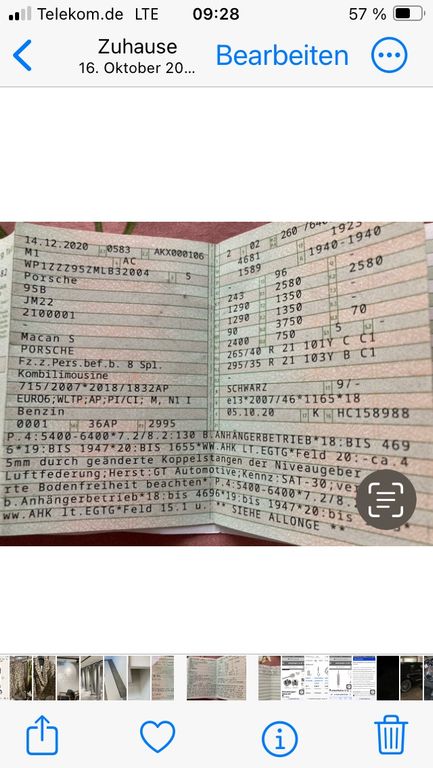 Telekom.de LTE 09:28 57 %
Zuhause
16. Oktober 20...
Bearbeiten
14.12.2020 0583 AKX000106
M1 AC
WP1ZZZ95ZMLB32004 5
Porsche
95B
JM22
2100001
-
Macan S
PORSCHE
Fz.z.Pers.bef.b. 8 Spl.
Kombilimousine
715/2007*2018/1832AP
EURO6;WLTP;AP;PI/CI; M, N1 I
Benzin
0001 36AP 2995
2 02 260 /640
4681 1925
1589 1940-1940
- 96 2580
243 2580 -
1290 1350 -
1290 1350 -
90 3750 70
2400 750 5
265/40 R 21 101Y C C1
295/35 R 21 103Y B C1
SCHWARZ 9/-
e13*2007/46*1165*18
05.10.20 K HC158988
P.4:5400-6400*7.2/8.2:130 B.ANHÄNGERBETRIEB*18:BIS 469
6*19:BIS 1947*20:BIS 1655*WW.AHK LT.EGTG*Feld 20:-ca.4
5mm durch geänderte Koppelstangen der Niveaugeber
Luftfederung;Herst:GT Automotive;Kennz:SAT-30;ver
rte Bodenfreiheit beachten* P.4:5400-6400*7.2/8.
b.Anhängerbetrieb*18:bis 4696*19:bis 1947*20:bis
ww.AHK lt.EGTG*Feld 15.1 u. ** SIEHE ALLONGE **